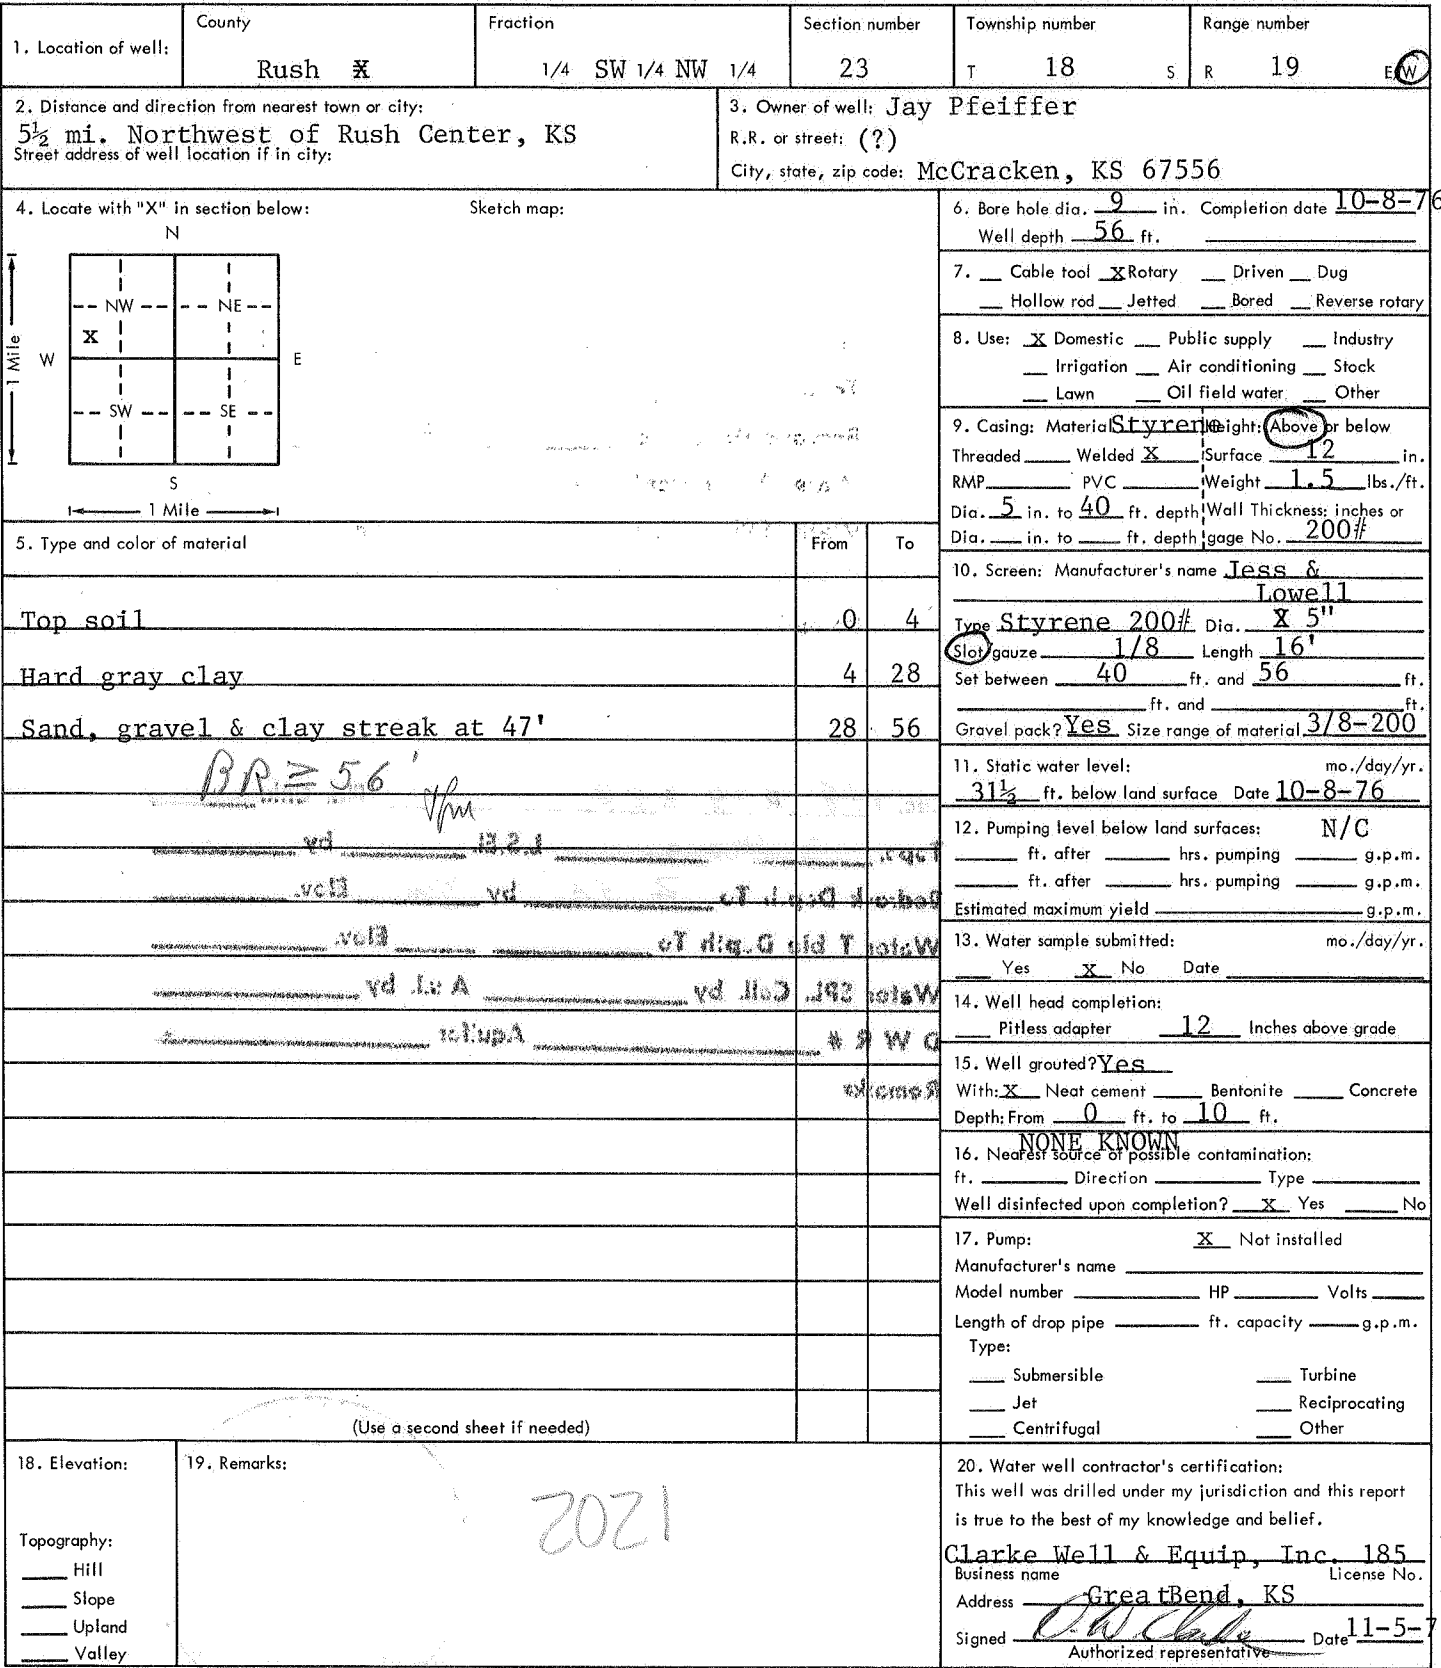 1. Location of well: County Rush X Fraction 1/4 SW 1/4 NW 1/4 Section number 23 Township number T 18 S Range number R 19 E/W
2. Distance and direction from nearest town or city:
5½ mi. Northwest of Rush Center, KS
Street address of well location if in city:
3. Owner of well: Jay Pfeiffer
R.R. or street: (?)
City, state, zip code: McCracken, KS 67556
4. Locate with "X" in section below: Sketch map:
N
NW NE
X
W E
1 Mile
SW SE
S
1 Mile
5. Type and color of material From To
Top soil 0 4
Hard gray clay 4 28
Sand, gravel & clay streak at 47' 28 56
BR ≥ 56'
Topo. L.S.El. by
Bedrock Depth To by Elev.
Water Table Depth To Elev.
Water SPL. Coll. by A al. by
D W R # Aquifer
Remarks
(Use a second sheet if needed)
6. Bore hole dia. 9 in. Completion date 10-8-76
Well depth 56 ft.
7. Cable tool X Rotary Driven Dug
Hollow rod Jetted Bored Reverse rotary
8. Use: X Domestic Public supply Industry
Irrigation Air conditioning Stock
Lawn Oil field water Other
9. Casing: Material Styrene Height: Above or below
Threaded Welded X Surface 12 in.
RMP PVC Weight 1.5 lbs./ft.
Dia. 5 in. to 40 ft. depth Wall Thickness: inches or
Dia. in. to ft. depth gage No. 200#
10. Screen: Manufacturer's name Jess &
Lowell
Type Styrene 200# Dia. X 5"
Slot/gauze 1/8 Length 16'
Set between 40 ft. and 56 ft.
ft. and ft.
Gravel pack? Yes Size range of material 3/8-200
11. Static water level: mo./day/yr.
31½ ft. below land surface Date 10-8-76
12. Pumping level below land surfaces: N/C
ft. after hrs. pumping g.p.m.
ft. after hrs. pumping g.p.m.
Estimated maximum yield g.p.m.
13. Water sample submitted: mo./day/yr.
Yes X No Date
14. Well head completion:
Pitless adapter 12 Inches above grade
15. Well grouted? Yes
With: X Neat cement Bentonite Concrete
Depth: From 0 ft. to 10 ft.
NONE KNOWN
16. Nearest source of possible contamination:
ft. Direction Type
Well disinfected upon completion? X Yes No
17. Pump: X Not installed
Manufacturer's name
Model number HP Volts
Length of drop pipe ft. capacity g.p.m.
Type:
Submersible Turbine
Jet Reciprocating
Centrifugal Other
18. Elevation:
Topography:
Hill
Slope
Upland
Valley
19. Remarks:
20. Water well contractor's certification:
This well was drilled under my jurisdiction and this report
is true to the best of my knowledge and belief.
Clarke Well & Equip, Inc. 185
Business name License No.
Address Great Bend, KS
Signed D.W. Clarke Date 11-5-7
Authorized representative